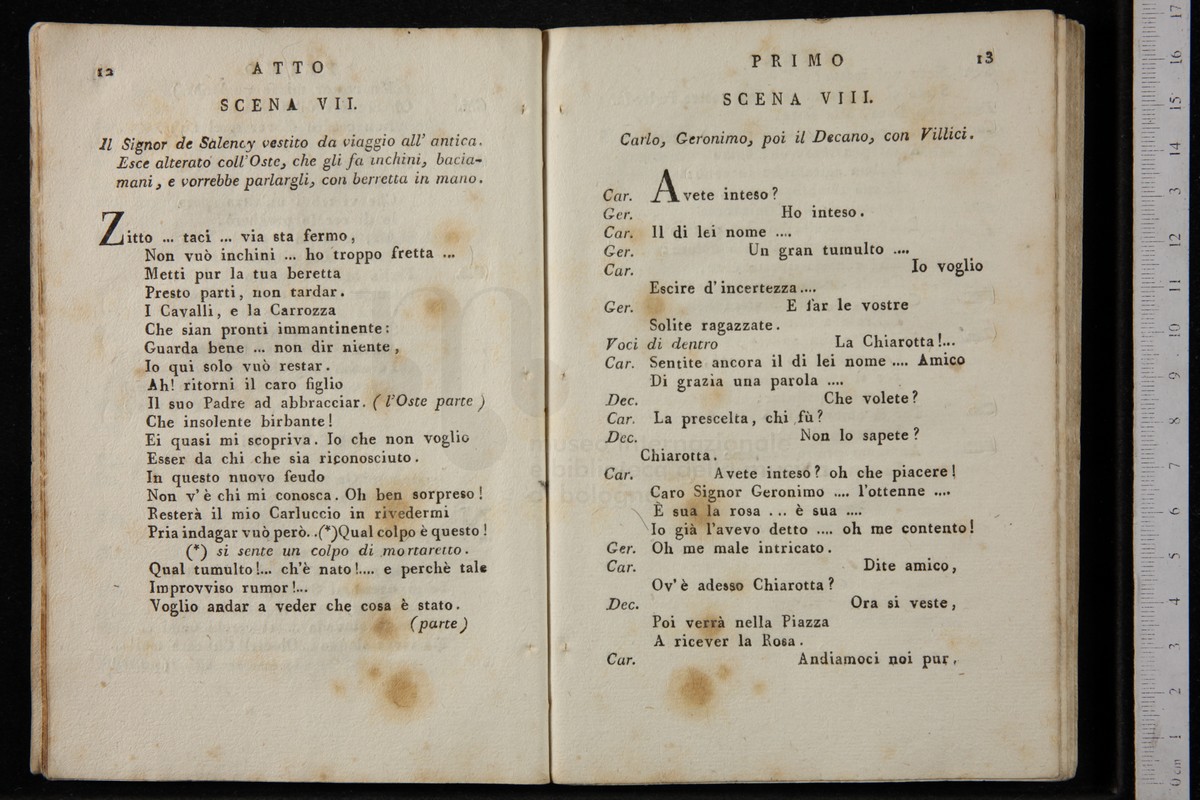 12
ATTO
SCENA VII.
Il Signor de Salency vestito da viaggio all' antica.
Esce alterato coll'Oste, che gli fa inchini, bacia-
mani, e vorrebbe parlargli, con berretta in mano.
Zitto ... taci ... via sta fermo,
Non vuò inchini ... ho troppo fretta ...
Metti pur la tua beretta
Presto parti, non tardar.
I Cavalli, e la Carrozza
Che sian pronti immantinente:
Guarda bene ... non dir niente,
Io qui solo vuò restar.
Ah! ritorni il caro figlio
Il suo Padre ad abbracciar. (l'Oste parte)
Che insolente birbante!
Ei quasi mi scopriva. Io che non voglio
Esser da chi che sia riconosciuto.
In questo nuovo feudo
Non v' è chi mi conosca. Oh ben sorpreso!
Resterà il mio Carluccio in rivedermi
Pria indagar vuò però. .(*)Qual colpo è questo!
(*) si sente un colpo di mortaretto.
Qual tumulto!... ch'è nato!.... e perchè tale
Improvviso rumor!...
Voglio andar a veder che cosa è stato.
(parte)
PRIMO
13
SCENA VIII.
Carlo, Geronimo, poi il Decano, con Villici.
Car. Avete inteso?
Ger. Ho inteso.
Car. Il di lei nome ....
Ger. Un gran tumulto ....
Car. Io voglio
Escire d' incertezza....
Ger. E far le vostre
Solite ragazzate.
Voci di dentro La Chiarotta!...
Car. Sentite ancora il di lei nome .... Amico
Di grazia una parola ....
Dec. Che volete?
Car. La prescelta, chi fù?
Dec. Non lo sapete?
Chiarotta.
Car. Avete inteso? oh che piacere!
Caro Signor Geronimo .... l'ottenne ....
È sua la rosa ... è sua ....
Io già l'avevo detto .... oh me contento!
Ger. Oh me male intricato.
Car. Dite amico,
Ov' è adesso Chiarotta?
Dec. Ora si veste,
Poi verrà nella Piazza
A ricever la Rosa.
Car. Andiamoci noi pur,
museo internazionale
e biblioteca della
di bologna
0 cm 1 2 3 4 5 6 7 8 9 10 11 12 13 14 15 16 17